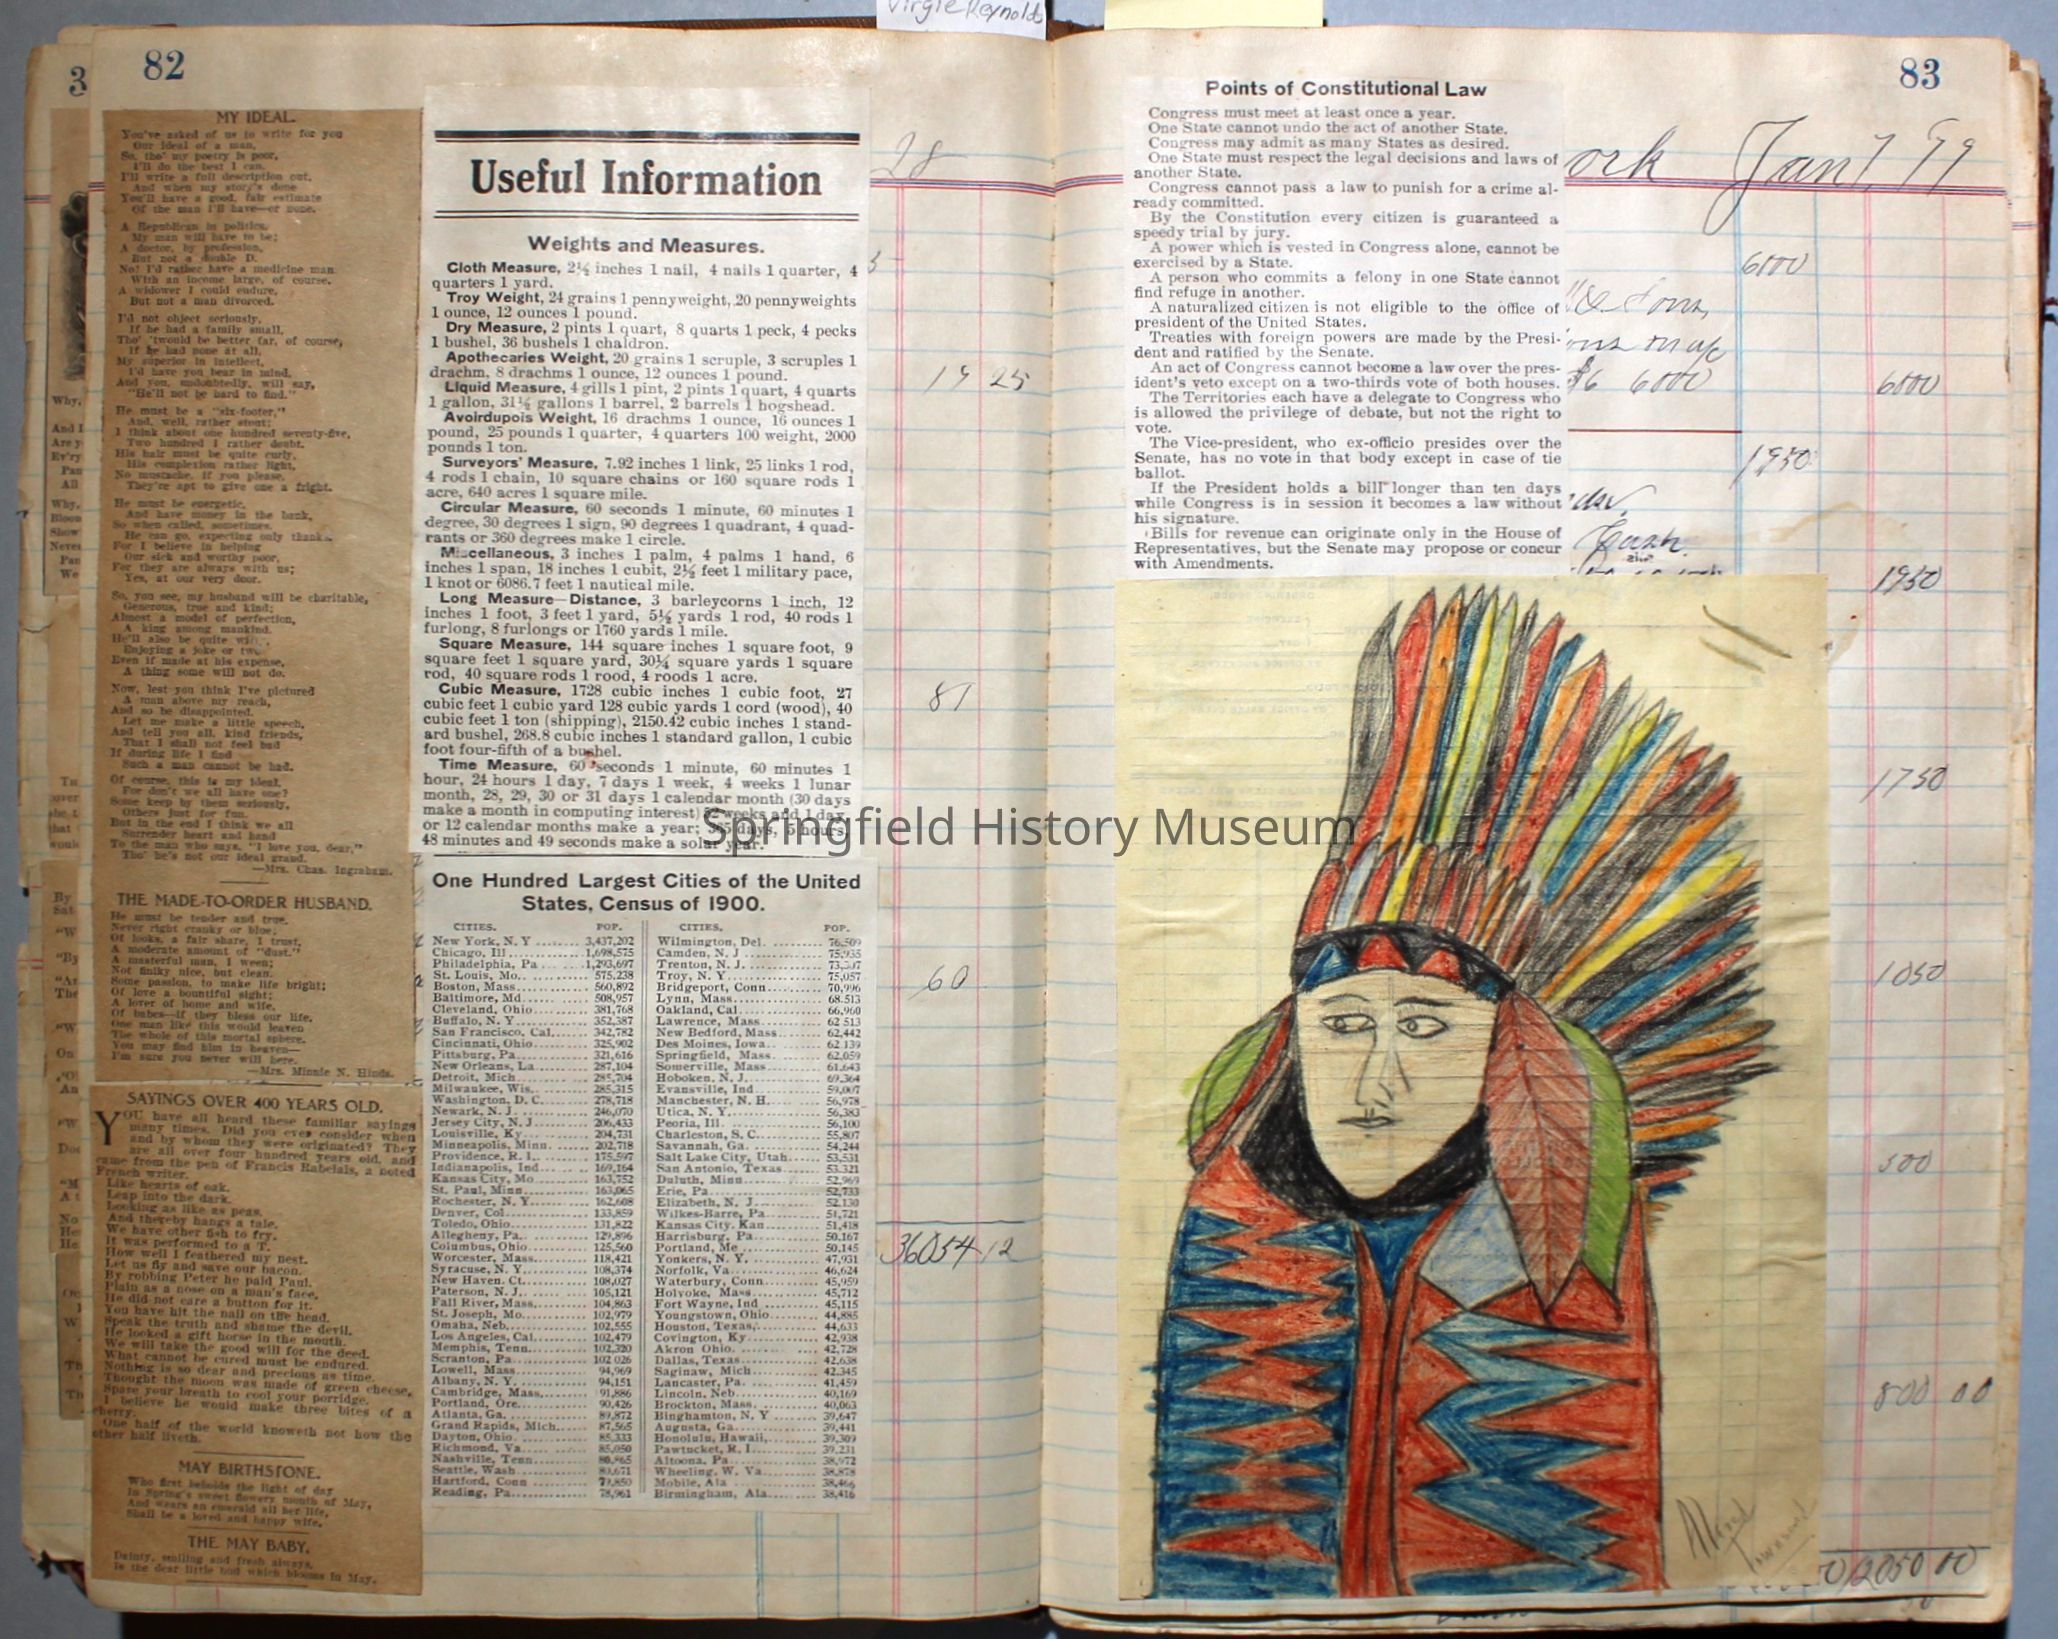 Virgie Reynolds
3
82
MY IDEAL.
You've asked of us to write for you
Our ideal of a man,
So, tho' my poetry is poor,
I'll do the best I can.
I'll write a full description out,
And when my story's done
You'll have a good, fair estimate
Of the man I'll have—or none.
A Republican in politics,
My man will have to be;
A doctor, by profession,
But not a double D.
No! I'd rather have a medicine man
With an income large, of course.
A widower I could endure,
But not a man divorced.
I'd not object seriously,
If he had a family small,
Tho' 'twould be better far, of course,
If he had none at all,
My superior in intellect,
I'd have you bear in mind,
And you, undoubtedly, will say,
"He'll not be hard to find."
He must be a "six-footer,"
And, well, rather stout;
I think about one hundred seventy-five,
Two hundred I rather doubt.
His hair must be quite curly,
His complexion rather light,
No mustache, if you please,
They're apt to give one a fright.
He must be energetic,
And have money in the bank,
So when called, sometimes,
He can go, expecting only thanks.
For I believe in helping
Our sick and worthy poor,
For they are always with us;
Yes, at our very door.
So, you see, my husband will be charitable,
Generous, true and kind;
Almost a model of perfection,
A king among mankind.
He'll also be quite
Enjoying a joke or two
Even if made at his expense,
A thing some will not do.
Now, lest you think I've pictured
A man above my reach,
And so be disappointed,
Let me make a little speech,
And tell you all, kind friends,
That I shall not feel bad
If during life I find
Such a man cannot be had.
Of course, this is my ideal,
For don't we all have one?
Some keep by them seriously,
Others just for fun.
But in the end I think we all
Surrender heart and hand
To the man who says, "I love you, dear,"
Tho' he's not our ideal grand.
—Mrs. Chas. Ingraham.
THE MADE-TO-ORDER HUSBAND.
He must be tender and true,
Never right cranky or blue;
Of looks, a fair share, I trust,
A moderate amount of "dust."
A masterful man, I ween;
Not finiky nice, but clean.
Some passion, to make life bright;
Of love a bountiful sight;
A lover of home and wife,
Of babes—if they bless our life.
One man like this would leaven
The whole of this mortal sphere.
You may find him in heaven—
I'm sure you never will here.
—Mrs. Minnie N. Hinds.
SAYINGS OVER 400 YEARS OLD.
YOU have all heard these familiar sayings
many times. Did you ever consider when
and by whom they were originated? They
are all over four hundred years old, and
came from the pen of Francis Rabelais, a noted
French writer.
Like hearts of oak.
Leap into the dark.
Looking as like as peas.
And thereby hangs a tale.
We have other fish to fry.
It was performed to a T.
How well I feathered my nest.
Let us fly and save our bacon.
By robbing Peter he paid Paul.
Plain as a nose on a man's face.
He did not care a button for it.
You have hit the nail on the head.
Speak the truth and shame the devil.
He looked a gift horse in the mouth.
We will take the good will for the deed.
What cannot be cured must be endured.
Nothing is so dear and precious as time.
Thought the moon was made of green cheese.
Spare your breath to cool your porridge.
I believe he would make three bites of a
cherry.
One half of the world knoweth not how the
other half liveth.
MAY BIRTHSTONE.
Who first beholds the light of day
In Spring's sweet flowery month of May,
And wears an emerald all her life,
Shall be a loved and happy wife.
THE MAY BABY.
Dainty, smiling and fresh always,
Is the dear little bud which blooms in May.
Useful Information
Weights and Measures.
Cloth Measure, 2¼ inches 1 nail, 4 nails 1 quarter, 4
quarters 1 yard.
Troy Weight, 24 grains 1 pennyweight, 20 pennyweights
1 ounce, 12 ounces 1 pound.
Dry Measure, 2 pints 1 quart, 8 quarts 1 peck, 4 pecks
1 bushel, 36 bushels 1 chaldron.
Apothecaries Weight, 20 grains 1 scruple, 3 scruples 1
drachm, 8 drachms 1 ounce, 12 ounces 1 pound.
Liquid Measure, 4 gills 1 pint, 2 pints 1 quart, 4 quarts
1 gallon, 31½ gallons 1 barrel, 2 barrels 1 hogshead.
Avoirdupois Weight, 16 drachms 1 ounce, 16 ounces 1
pound, 25 pounds 1 quarter, 4 quarters 100 weight, 2000
pounds 1 ton.
Surveyors' Measure, 7.92 inches 1 link, 25 links 1 rod,
4 rods 1 chain, 10 square chains or 160 square rods 1
acre, 640 acres 1 square mile.
Circular Measure, 60 seconds 1 minute, 60 minutes 1
degree, 30 degrees 1 sign, 90 degrees 1 quadrant, 4 quad-
rants or 360 degrees make 1 circle.
Miscellaneous, 3 inches 1 palm, 4 palms 1 hand, 6
inches 1 span, 18 inches 1 cubit, 2½ feet 1 military pace,
1 knot or 6086.7 feet 1 nautical mile.
Long Measure—Distance, 3 barleycorns 1 inch, 12
inches 1 foot, 3 feet 1 yard, 5½ yards 1 rod, 40 rods 1
furlong, 8 furlongs or 1760 yards 1 mile.
Square Measure, 144 square inches 1 square foot, 9
square feet 1 square yard, 30¼ square yards 1 square
rod, 40 square rods 1 rood, 4 roods 1 acre.
Cubic Measure, 1728 cubic inches 1 cubic foot, 27
cubic feet 1 cubic yard 128 cubic yards 1 cord (wood), 40
cubic feet 1 ton (shipping), 2150.42 cubic inches 1 stand-
ard bushel, 268.8 cubic inches 1 standard gallon, 1 cubic
foot four-fifth of a bushel.
Time Measure, 60 seconds 1 minute, 60 minutes 1
hour, 24 hours 1 day, 7 days 1 week, 4 weeks 1 lunar
month, 28, 29, 30 or 31 days 1 calendar month (30 days
make a month in computing interest) 52 weeks and 1 day,
or 12 calendar months make a year; 365 days, 5 hours,
48 minutes and 49 seconds make a solar year.
One Hundred Largest Cities of the United
States, Census of 1900.
CITIES. POP.
New York, N. Y. 3,437,202
Chicago, Ill. 1,698,575
Philadelphia, Pa 1,293,697
St. Louis, Mo. 575,238
Boston, Mass. 560,892
Baltimore, Md. 508,957
Cleveland, Ohio 381,768
Buffalo, N. Y. 352,387
San Francisco, Cal. 342,782
Cincinnati, Ohio 325,902
Pittsburg, Pa. 321,616
New Orleans, La 287,104
Detroit, Mich 285,704
Milwaukee, Wis. 285,315
Washington, D. C. 278,718
Newark, N. J. 246,070
Jersey City, N. J. 206,433
Louisville, Ky. 204,731
Minneapolis, Minn. 202,718
Providence, R. I. 175,597
Indianapolis, Ind. 169,164
Kansas City, Mo 163,752
St. Paul, Minn. 163,065
Rochester, N. Y. 162,608
Denver, Col. 133,859
Toledo, Ohio 131,822
Allegheny, Pa. 129,896
Columbus, Ohio 125,560
Worcester, Mass. 118,421
Syracuse, N. Y. 108,374
New Haven. Ct. 108,027
Paterson, N. J. 105,121
Fall River, Mass. 104,863
St. Joseph, Mo. 102,979
Omaha, Neb. 102,555
Los Angeles, Cal. 102,479
Memphis, Tenn. 102,320
Scranton, Pa. 102 026
Lowell, Mass. 94,969
Albany, N. Y. 94,151
Cambridge, Mass. 91,886
Portland, Ore. 90,426
Atlanta, Ga. 89,872
Grand Rapids, Mich. 87,565
Dayton, Ohio 85,333
Richmond, Va. 85,050
Nashville, Tenn. 80,865
Seattle, Wash. 80,671
Hartford, Conn 79,850
Reading, Pa. 78,961
CITIES. POP.
Wilmington, Del. 76,509
Camden, N. J 75,935
Trenton, N. J. 73,307
Troy, N. Y. 75,057
Bridgeport, Conn. 70,996
Lynn, Mass. 68.513
Oakland, Cal. 66,960
Lawrence, Mass. 62 513
New Bedford, Mass. 62,442
Des Moines, Iowa. 62 139
Springfield, Mass. 62,059
Somerville, Mass. 61,643
Hoboken, N. J. 59,364
Evansville, Ind. 59,007
Manchester, N. H. 56,978
Utica, N. Y. 56,383
Peoria, Ill. 56,100
Charleston, S. C. 55,807
Savannah, Ga. 54,244
Salt Lake City, Utah 53,531
San Antonio, Texas 53.321
Duluth, Minn 52,969
Erie, Pa. 52,733
Elizabeth, N. J. 52,130
Wilkes-Barre, Pa. 51,721
Kansas City. Kan 51,418
Harrisburg, Pa. 50,167
Portland, Me 50,145
Yonkers, N. Y. 47,931
Norfolk, Va. 46,624
Waterbury, Conn. 45,959
Holyoke, Mass. 45,712
Fort Wayne, Ind 45,115
Youngstown, Ohio 44,885
Houston, Texas. 44,633
Covington, Ky. 42,938
Akron Ohio. 42,728
Dallas, Texas 42,638
Saginaw, Mich 42,345
Lancaster, Pa. 41,459
Lincoln, Neb. 40,169
Brockton, Mass. 40,063
Binghamton, N. Y 39,647
Augusta, Ga. 39,441
Honolulu, Hawaii, 39,309
Pawtucket, R. I. 39,231
Altoona, Pa. 38,972
Wheeling, W. Va. 38,878
Mobile, Ala 38,466
Birmingham, Ala. 38,416
28
3
19 25
81
60
36054 12
83
Points of Constitutional Law
Congress must meet at least once a year.
One State cannot undo the act of another State.
Congress may admit as many States as desired.
One State must respect the legal decisions and laws of
another State.
Congress cannot pass a law to punish for a crime al-
ready committed.
By the Constitution every citizen is guaranteed a
speedy trial by jury.
A power which is vested in Congress alone, cannot be
exercised by a State.
A person who commits a felony in one State cannot
find refuge in another.
A naturalized citizen is not eligible to the office of
president of the United States.
Treaties with foreign powers are made by the Presi-
dent and ratified by the Senate.
An act of Congress cannot become a law over the pres-
ident's veto except on a two-thirds vote of both houses.
The Territories each have a delegate to Congress who
is allowed the privilege of debate, but not the right to
vote.
The Vice-president, who ex-officio presides over the
Senate, has no vote in that body except in case of tie
ballot.
If the President holds a bill longer than ten days
while Congress is in session it becomes a law without
his signature.
Bills for revenue can originate only in the House of
Representatives, but the Senate may propose or concur
with Amendments.
ork Jan 1, 99
6000
& Sons,
$6 6000
6000
1950
Cash
1950
1750
1050
500
800 00
12050 00
Springfield History Museum